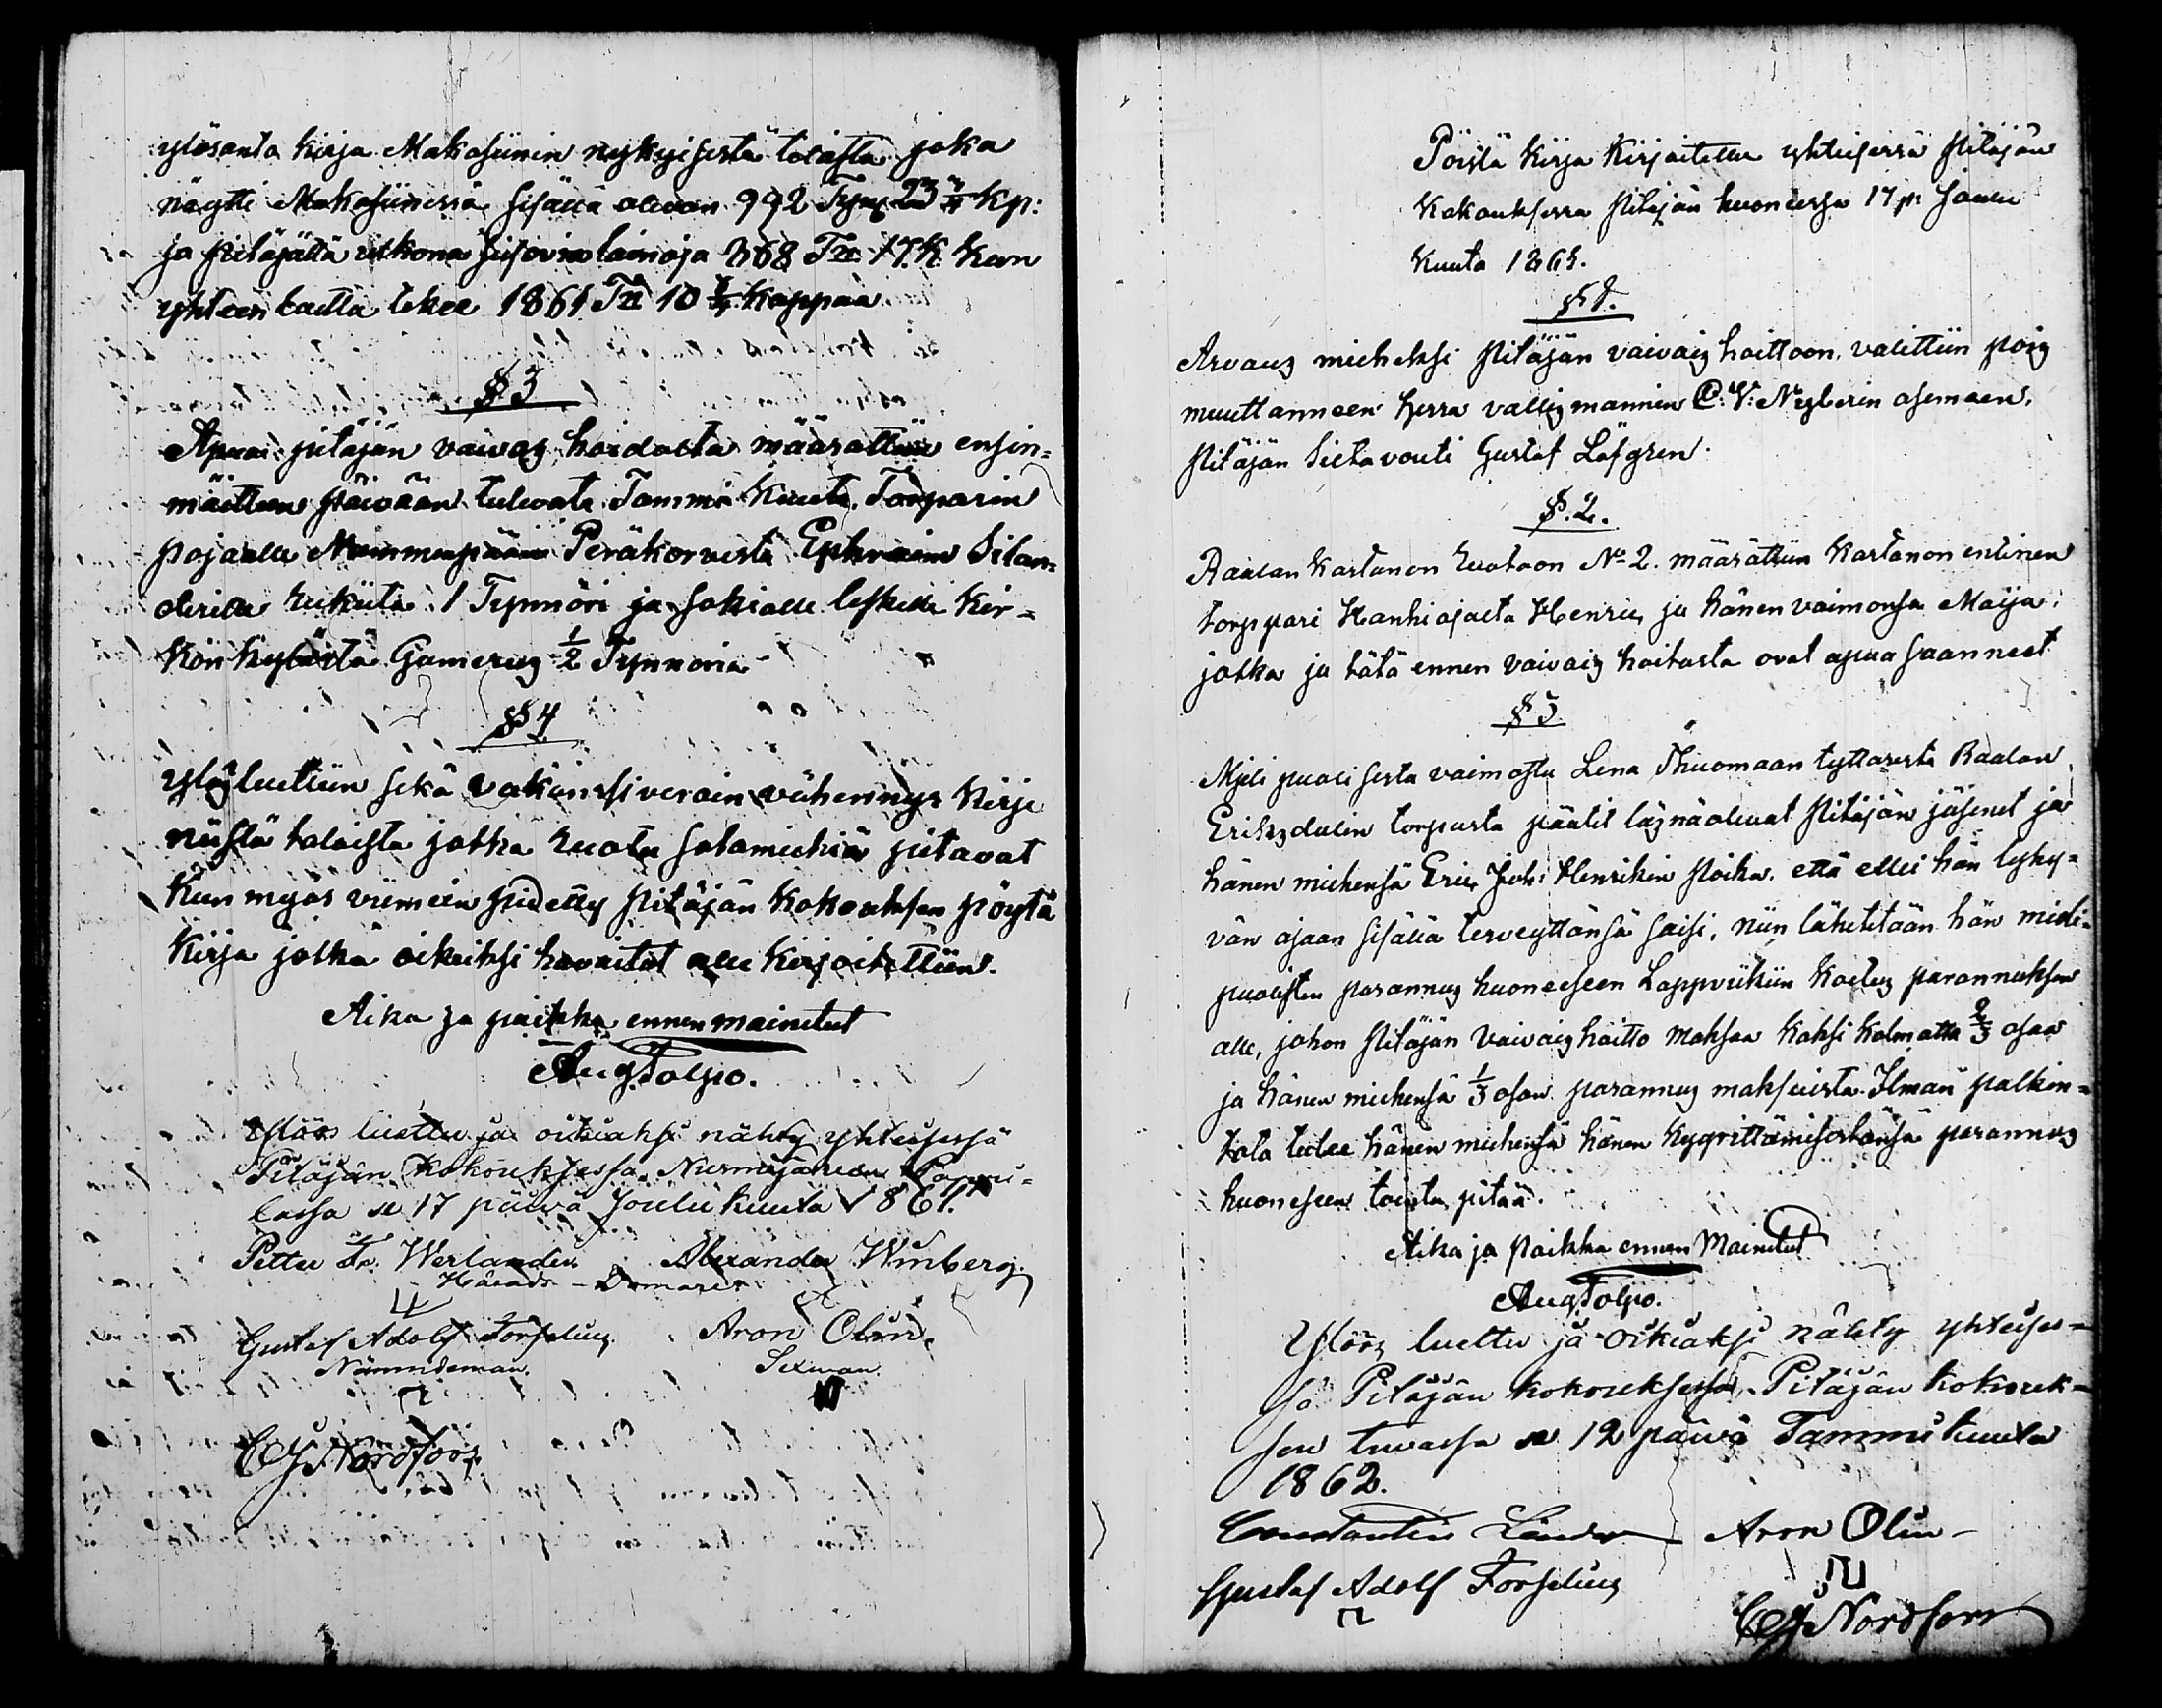 ylösanto kirja Makasiinin nykyisestä tilasta joka
näytti Makasiinissa sisällä olevan 992 Tyn 23 Kp:
ja pitäjällä ulkona seisovia lainoja 868 Tr. 17. K. kun
yhteen laitta tekee 1861 Tr 10 kappaa
§ 3
Apua pitäjän vaivaz hoidolta määrättiin ensin=
mäittein päivään tulevata Tammi kuuta. Torparin
pojalle Nummenpään Peräkorvesta Ephraim Silan=
derille rukiita 1 Tynnöri ja sokialle leskelle Kir=
kön kylästä Gamerus ½ Tynnöriä
§ 4
Ylösluettiin sekä vakanssi veroin vähennys kirja
niistä taloista jotka ruotu sotamiehiä pitavat
kun myös viimein pidetty pitäjän kokouksen pöytä
kirja jotka oikeiksi havaitut alle kirjoitettiin.
Aika ja paikka ennen mainitut
Aug Tolpo.
Ylös luettu ja oikiaksi nähty yhteisessä
Pitäjän kokouksessa Nurmijärven Pappi=
lassa se 17 päivä Joulu kuuta 1861.
Petter Fr. Werlander Alexander Winberg
Härads-Domare
Gustaf Adolf Forselius Aron Olin
Nämndeman. Sexman
CG Nordfors
Pöistä kirja kirjoitettu yhteisessä pitäjän
Kokouksessa pitäjän huoneessa 17 p: Joulu
Kuuta 1861.
§ 1.
Arvaus mieheksi pitäjän vaivais haittoon. valittiin pois
muuttanneen herra vallesmannin C: V: Nyberin asemaan,
pitäjän Siltavouti Gustaf Löfgren.
§. 2.
Raalan kartanon Ruotoon No 2. määrättiin kartanon entinen
torppari Hanhiojalta Henric, ja hänen vaimonsa Maija.
jotka ja tätä ennen vaivais hoitosta ovat apua saanneet
§ 3
Mieli puolisesta vaimosta Lena Thuomaan tyttarestä Raalan
Erikzdalin torpasta päätit läznäolevat pitäjän jäsenet ja
hänen miehensä Eric Joh: Henrikin poika. että ellei hän lyhy=
vän ajaan sisällä terveyttänsä saisi, niin lähetetään hän mieli=
puolisten parannus huoneeseen Lappviikiin koetus parannuksen
alle, johon pitäjän Vaivaishoitto maksaa kaksi kolmatta ⅔ osaa
ja hänen miehensä ⅓ osan parannus maksuista. Ilman palkin=
tota tulee hänen miehensä hänen kyyrittämisestänsä parannus
huoneseen toimta pitää.
Aika ja paikka ennen Mainitut
Aug Tolpo.
Ylös luettu ja oikiaksi nähty yhteises=
sä Pitäjän kokouksessa, Pitäjän kokouk=
sen tuvassa se 12 päivä Tammi kuuta
1862.
Constantin Linder Aron Olin
Gustaf Adolf Forselius
CG Nordfors